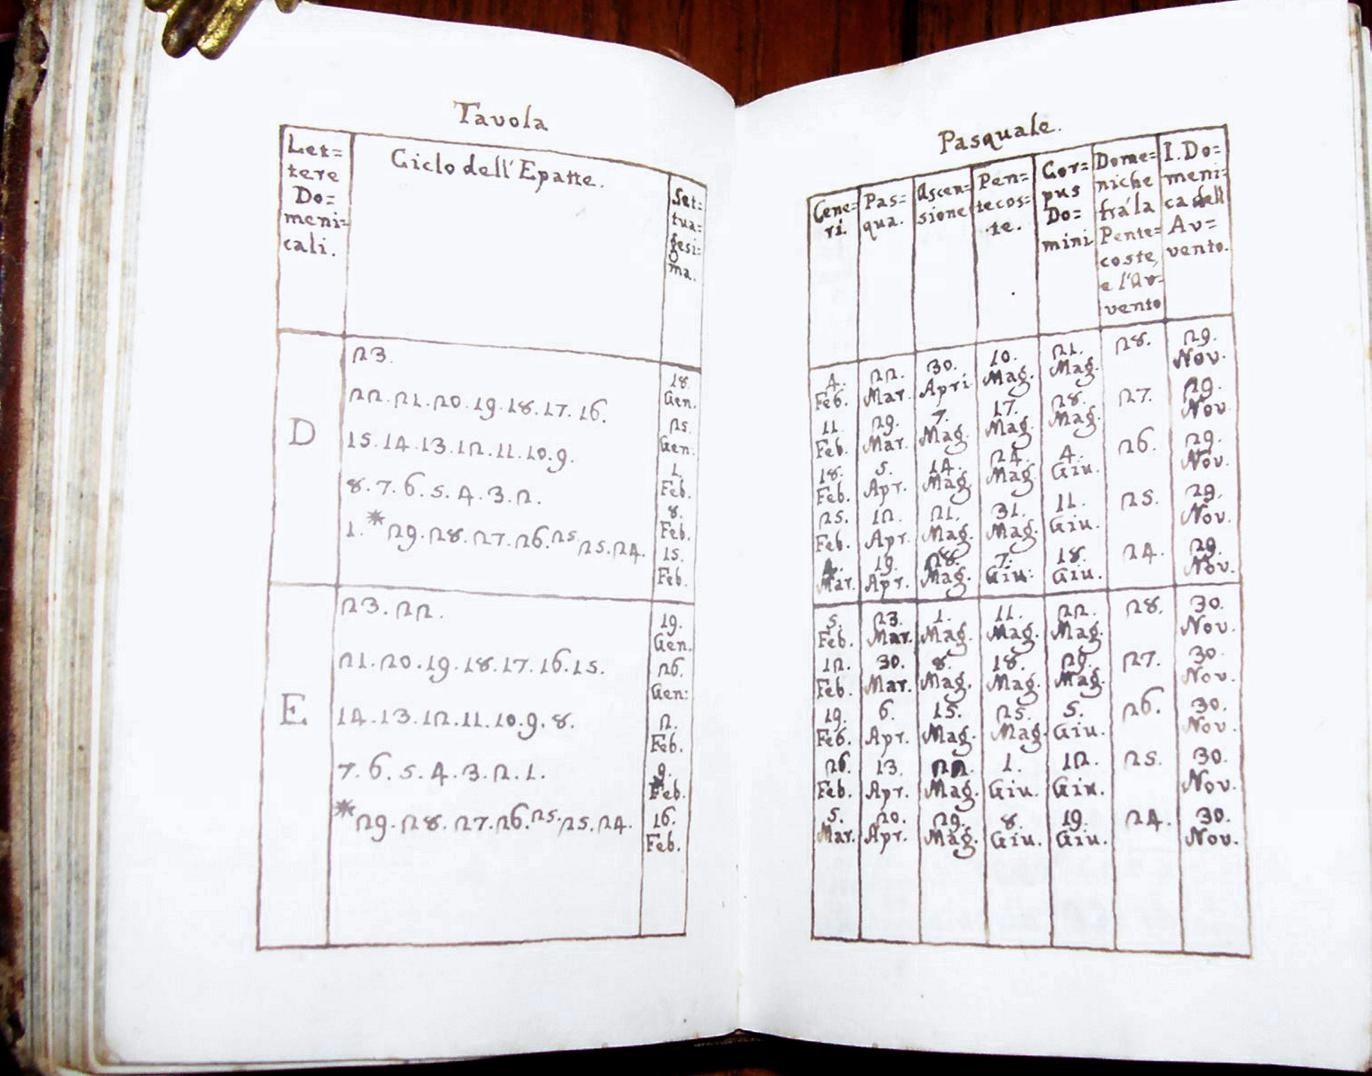 Tavola
Let=
tere
Do=
meni=
cali.
Ciclo dell'Epatte.
Set=
tua=
gesi=
ma.
D
23.
18.
Gen.
22.21.20.19.18.17.16.
25.
Gen.
15.14.13.12.11.10.9.
1.
Feb.
8.7.6.5.4.3.2.
8.
Feb.
1.*29.28.27.26.25.25.24.
15.
Feb.
E
23.22.
19.
Gen.
21.20.19.18.17.16.15.
26.
Gen:
14.13.12.11.10.9.8.
2.
Feb.
7.6.5.4.3.2.1.
9.
Feb.
*29.28.27.26.25.25.24.
16.
Feb.
Pasquale.
Cene=
ri.
Pas=
qua.
Ascen=
sione
Pen=
tecos=
te.
Cor=
pus
Do=
mini
Dome=
niche
fra'la
Pente=
coste,
e l'Av=
vento
I. Do=
meni=
ca dell
Av=
vento.
4. 22. 30. 10. 21. 28. 29.
Feb. Mar. Apri. Mag. Mag. Nov.
11. 29. 7. 17. 28. 27. 29.
Feb. Mar. Mag. Mag. Mag. Nov.
18. 5. 14. 24. 4. 26. 29.
Feb. Apr. Mag. Mag. Giu. Nov.
25. 12. 21. 31. 11. 25. 29.
Feb. Apr. Mag. Mag. Giu. Nov.
4. 19. 28. 7. 18. 24. 29.
Mar. Apr. Mag. Giu: Giu. Nov.
5. 23. 1. 11. 22. 28. 30.
Feb. Mar. Mag. Mag. Mag. Nov.
12. 30. 8. 18. 29. 27. 30.
Feb. Mar. Mag. Mag. Mag. Nov.
19. 6. 15. 25. 5. 26. 30.
Feb. Apr. Mag. Mag. Giu. Nov.
26. 13. 22. 1. 12. 25. 30.
Feb. Apr. Mag. Giu. Giu. Nov.
5. 20. 29. 8. 19. 24. 30.
Mar. Apr. Mag. Giu. Giu. Nov.